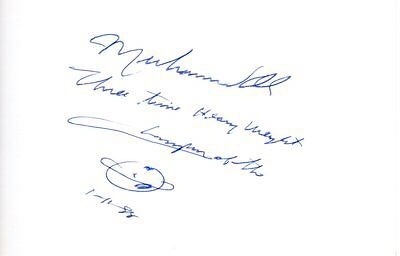 Muhammad Ali
Three time Heavy Weight
Champion of the
1-11-88